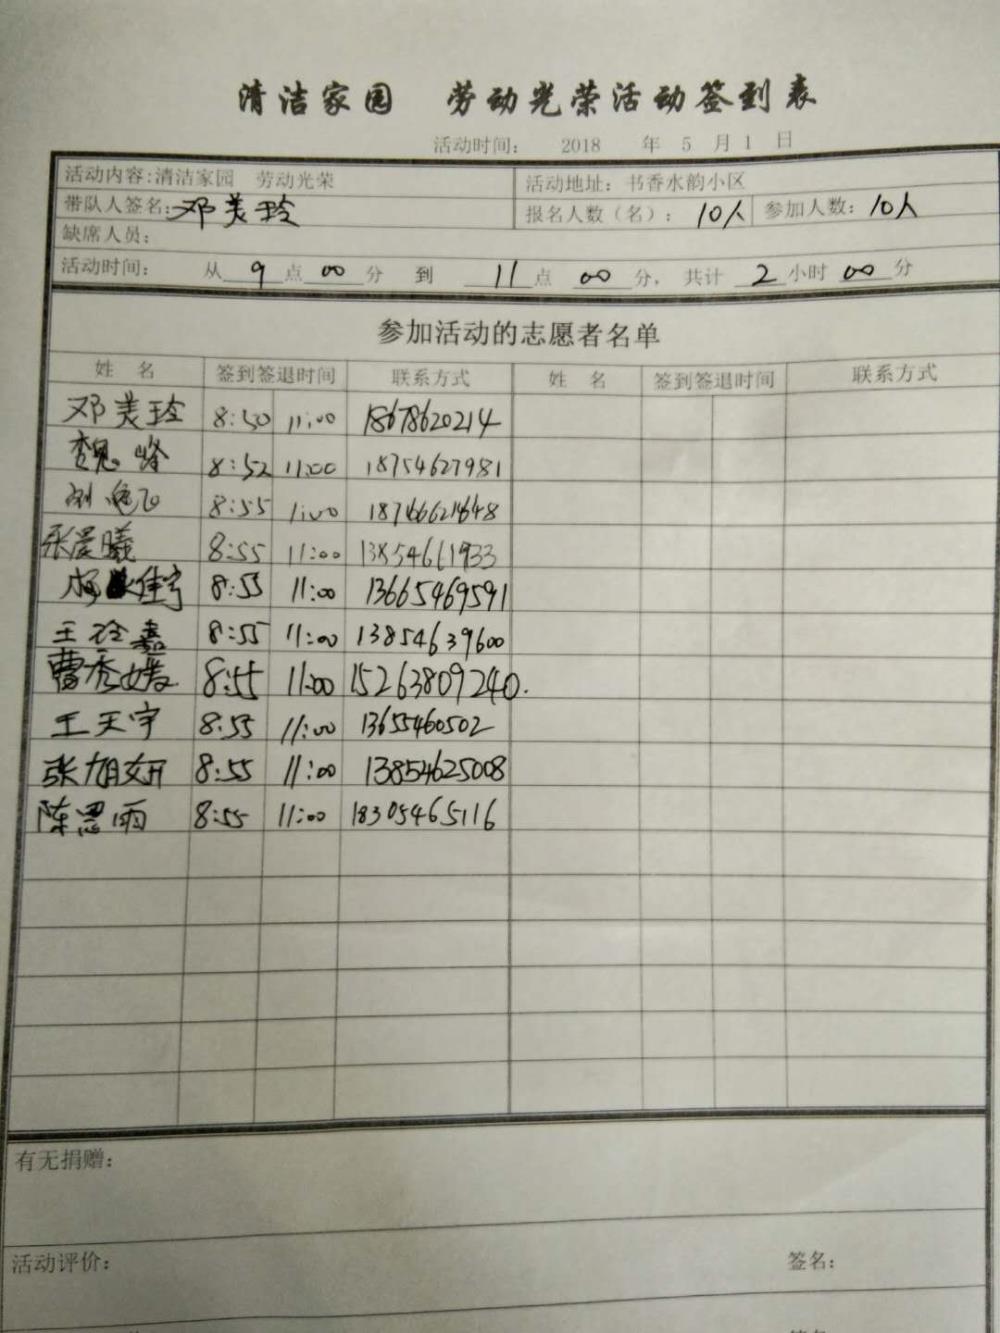 清洁家园 劳动光荣活动签到表
活动时间: 2018 年 5 月 1 日
活动内容:清洁家园 劳动光荣 活动地址: 书香水韵小区
带队人签名:邓美玲 报名人数(名): 10人 参加人数: 10人
缺席人员:
活动时间: 从 9 点 00 分 到 11 点 00 分, 共计 2 小时 00 分
参加活动的志愿者名单
姓 名 签到签退时间 联系方式 姓 名 签到签退时间 联系方式
邓美玲 8:50 11:00 18678620214
魏峰 8:52 11:00 18754627981
刘 8:55 11:00
张晨曦 8:55 11:00 13854661933
杨佳宁 8:55 11:00 13665469591
王玲嘉 8:55 11:00 13854639600
曹秀媛 8:55 11:00 15263809240.
王天宇 8:55 11:00 13655460502
张旭妍 8:55 11:00 13854625008
陈思雨 8:55 11:00 18305465116
有无捐赠:
活动评价: 签名: